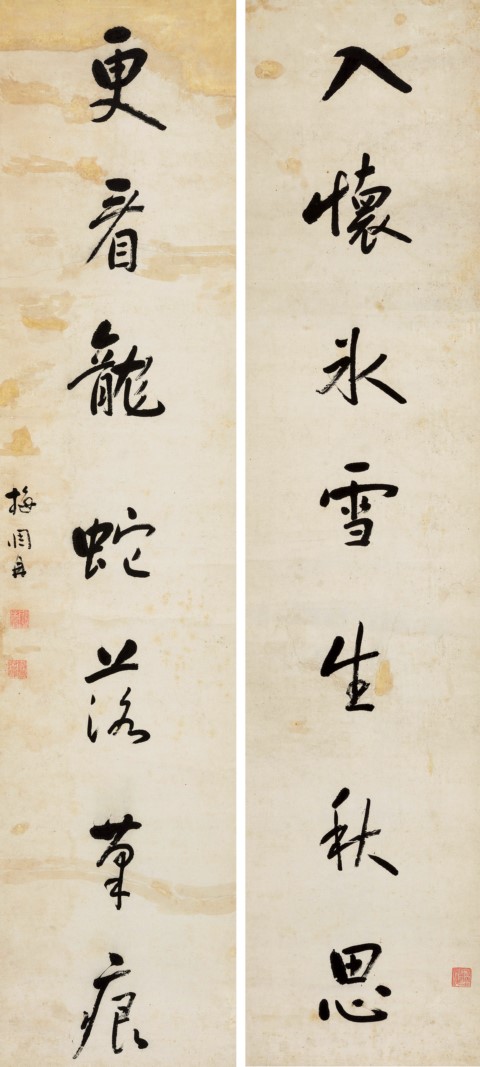 入懷冰雪生秋思
更看龍蛇落筆痕
梅調鼎